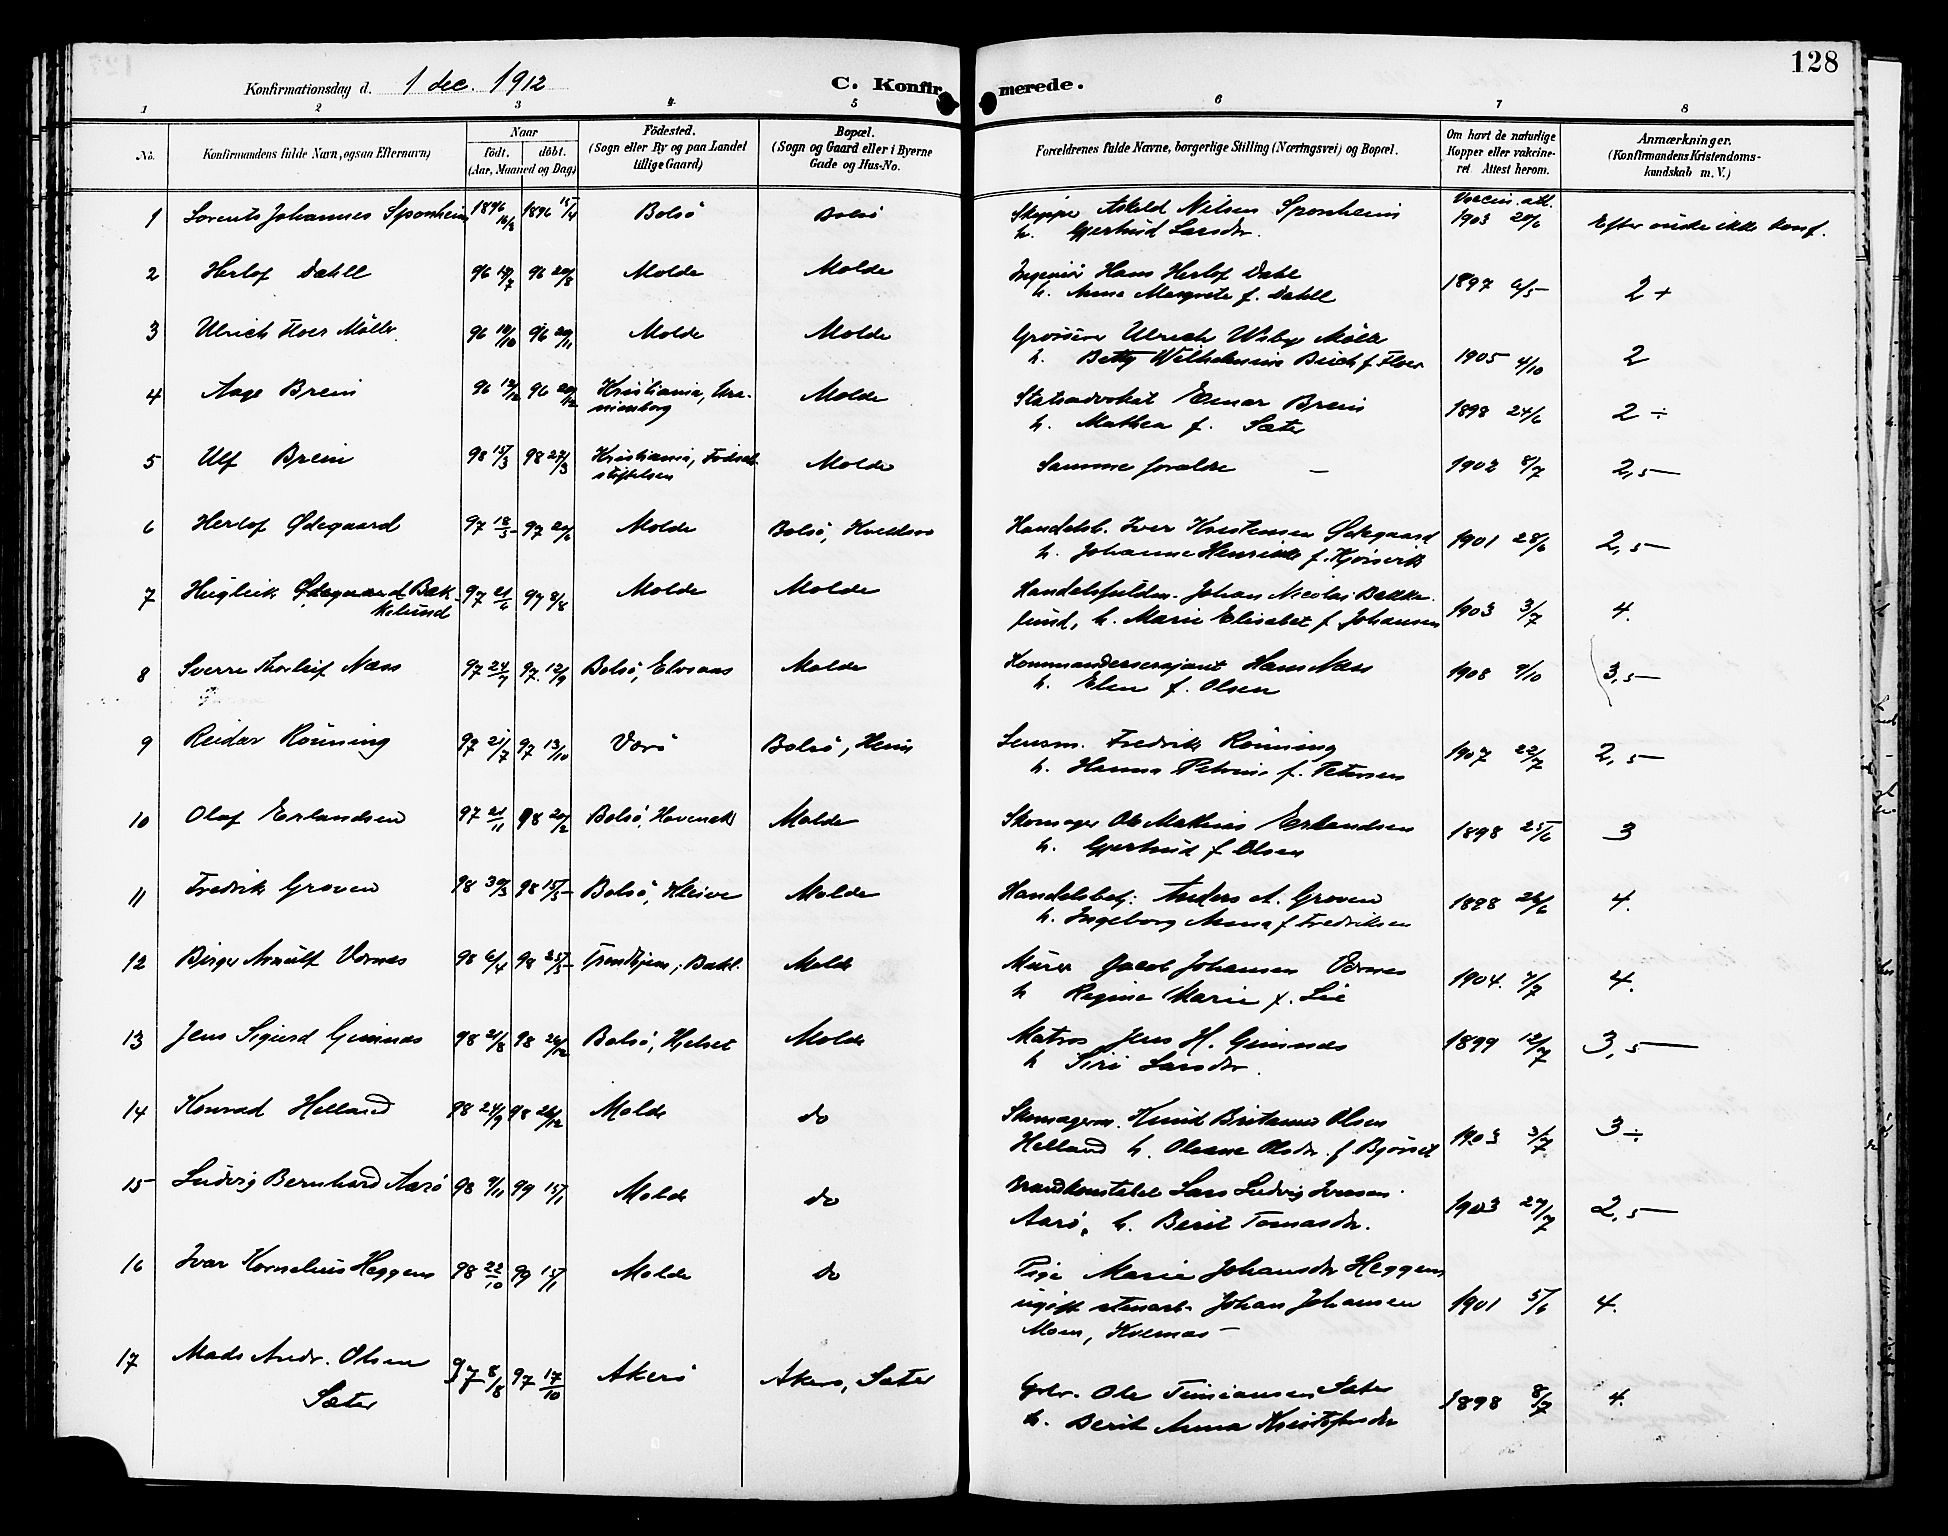 128
Konfirmationsdag d. 1 dec. 1912
C. Konfirmerede.
1 2 3 4 5 6 7 8
No.
Konfirmandens fulde Navn, ogsaa Efternavn)
Naar
født. døbt.
(Aar, Maaned og Dag)
Fødested.
(Sogn eller By og paa Landet
tillige Gaard)
Bopæl.
(Sogn og Gaard eller i Byerne
Gade og Hus-No.
Forældrenes fulde Navne, borgerlige Stilling (Næringsvei) og Bopæl.
Om havt de naturlige
Kopper eller vakcine-
ret Attest herom.
Anmærkninger.
(Konfirmandens Kristendoms-
kundskab m. V.)
1 Lorents Johannes Sponheim 1896 16/3 1896 15/4 Bolsö Bolsö Skipper Askeld Nilsen Sponheim Vaccin. att. 1903 20/6 Efter önske ikke konf.
h. Gjertrud Larsdr.
2 Herlof Dahll 96 19/7 96 20/8 Molde Molde Ingeniör Hans Herlof Dahl 1897 6/5 2 +
h. Anna Margrete f. Dahll
3 Ulrich Floer Möller 96 10/10 96 20/11 Molde Molde Grosserer Ulrich Wisby Möller
h. Betty Wilhelmine Buch f. Floer 1905 4/10 2
4 Aage Brein 96 12/12 96 20/12 Kristiania, Ura-
nienborg Molde Statsadvokat Einar Brein 1898 24/6 2 ÷
h. Mathea f. Sæter
5 Ulf Brein 98 15/3 98 27/3 Kristiania, Födsels-
stiftelsen Molde Samme forældre – 1902 8/7 2,5
6 Herlof Ødegaard 97 18/5 97 20/6 Molde Bolsö, Kveldsro Handelsb. Iver Kristensen Ødegaard 1901 28/6 2,5
h. Johanne Henrikke f. Kjörsvik
7 Hugleik Ødegaard Bæk-
kelund 97 21/6 97 8/8 Molde Molde Handelsfuldm. Johan Nicolai Bække-
lund, h. Marie Elisabet f. Johansen 1903 3/7 4.
8 Sverre Thorleif Næss 97 24/7 97 12/9 Bolsö, Elvsaas Molde Kommandersersjant Hans Næss 1908 9/10 3,5
h. Elen f. Olsen
9 Reidar Rönning 97 21/7 97 13/10 Værö Bolsö, Hem Lensm. Fredrik Rönning 1907 22/7 2,5
h. Hanna Petrine f. Petersen
10 Olaf Erlandsen 97 21/11 98 20/2 Bolsö, Havnevik Molde Skomager Ole Mathias Erlandsen 1898 25/6 3
h. Gjertrud f Olsen
11 Fredrik Groven 98 30/3 98 15/5 Bolsö, Kleive Molde Handelsbetj. Anders A. Groven 1898 26/6 4.
h. Ingeborg Anna f Fredriksen
12 Birger Arnulf Vernes 98 6/4 98 25/5 Trondhjem, Bakl. Molde Murer Jacob Johansen Vernes 1904. 7/7 4.
h Regine Marie f. Lie
13 Jens Sigurd Gimnes 98 21/8 98 26/12 Bolsö, Hjelset Molde Matros Jens H. Gimnes 1899 12/7 3,5
h Siri Larsdr.
14 Konrad Helland 98 24/9 98 26/12 Molde do Skomagerm. Knud Britanus Olsen
Helland h. Oleane Olsdr. f Bjørset 1903 3/7 3 ÷
15 Ludvig Bernhard Aarö 98 9/11 99 15/1 Molde do Brandkonstabel Lars Ludvig Iversen
Aarö, h. Berit Tomasdr. 1903 27/7 2,5
16 Ivar Kornelius Heggem 98 22/10 99 15/1 Molde do Pige Marie Johansdr Heggem
ugift stenarb. Johan Johansen 1901 5/6 4.
Moen, Kvernæs –
17 Mads Andr. Olsen
Sæter 97 8/8 97 17/10 Akerö Akerö, Sæter Gbr. Ole Simiansen Sæter 1898 8/7 4.
h. Berit Anna Kristofersdr